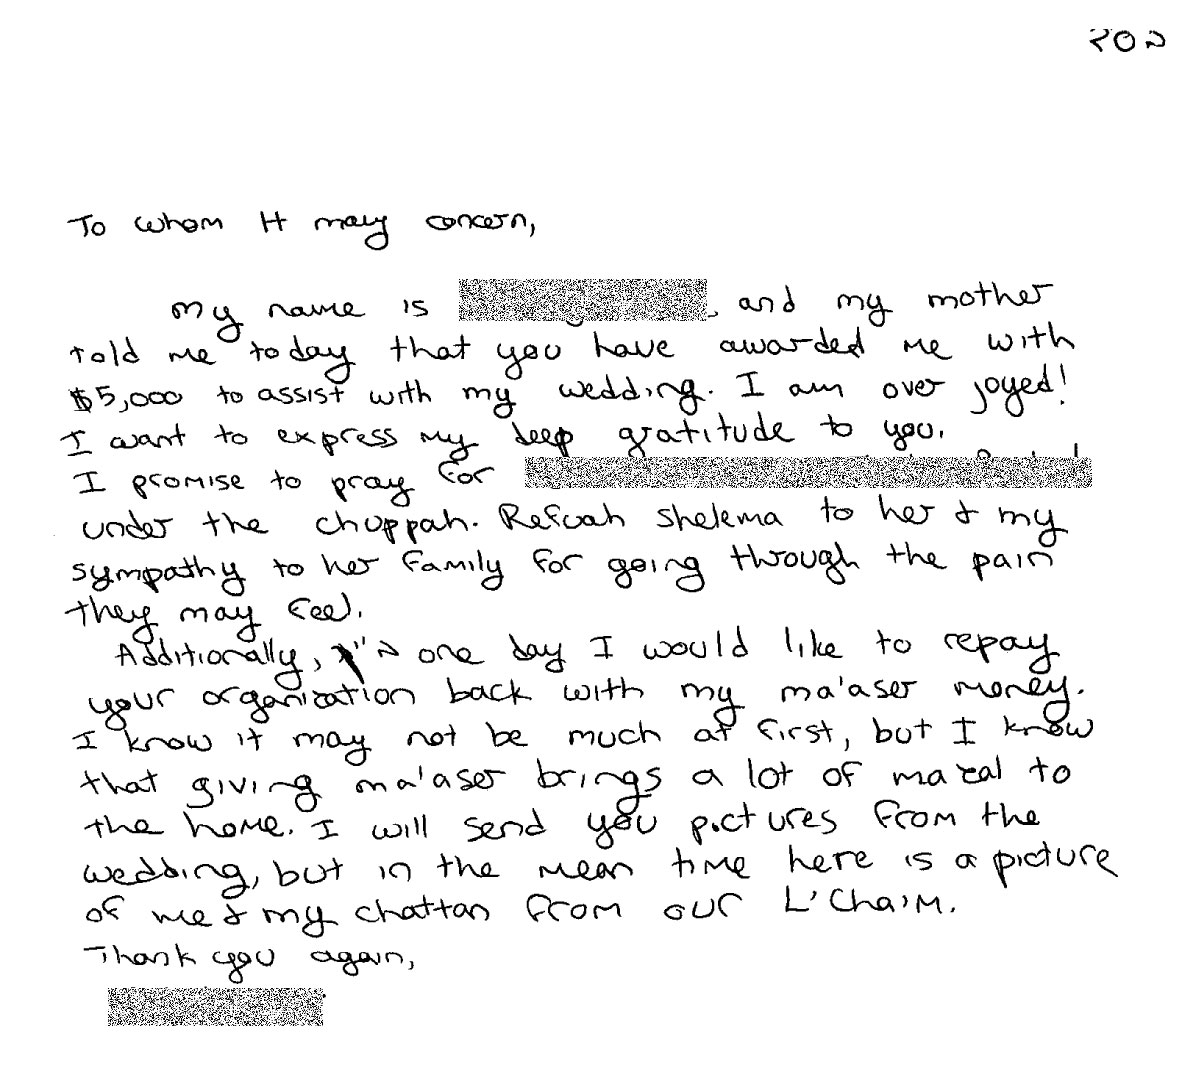 בסד
To whom It may concern,
My name is , and my mother
told me today that you have awarded me with
$5,000 to assist with my wedding. I am over joyed!
I want to express my deep gratitude to you.
I promise to pray for
under the chuppah. Refuah Shelema to her & my
sympathy to her family for going through the pain
they may feel.
Additionally, אי"ה one day I would like to repay
your organization back with my ma'aser money.
I know it may not be much at first, but I know
that giving ma'aser brings a lot of mazal to
the home. I will send you pictures from the
wedding, but in the mean time here is a picture
of me & my chattan from our L'Chaim.
Thank you again,